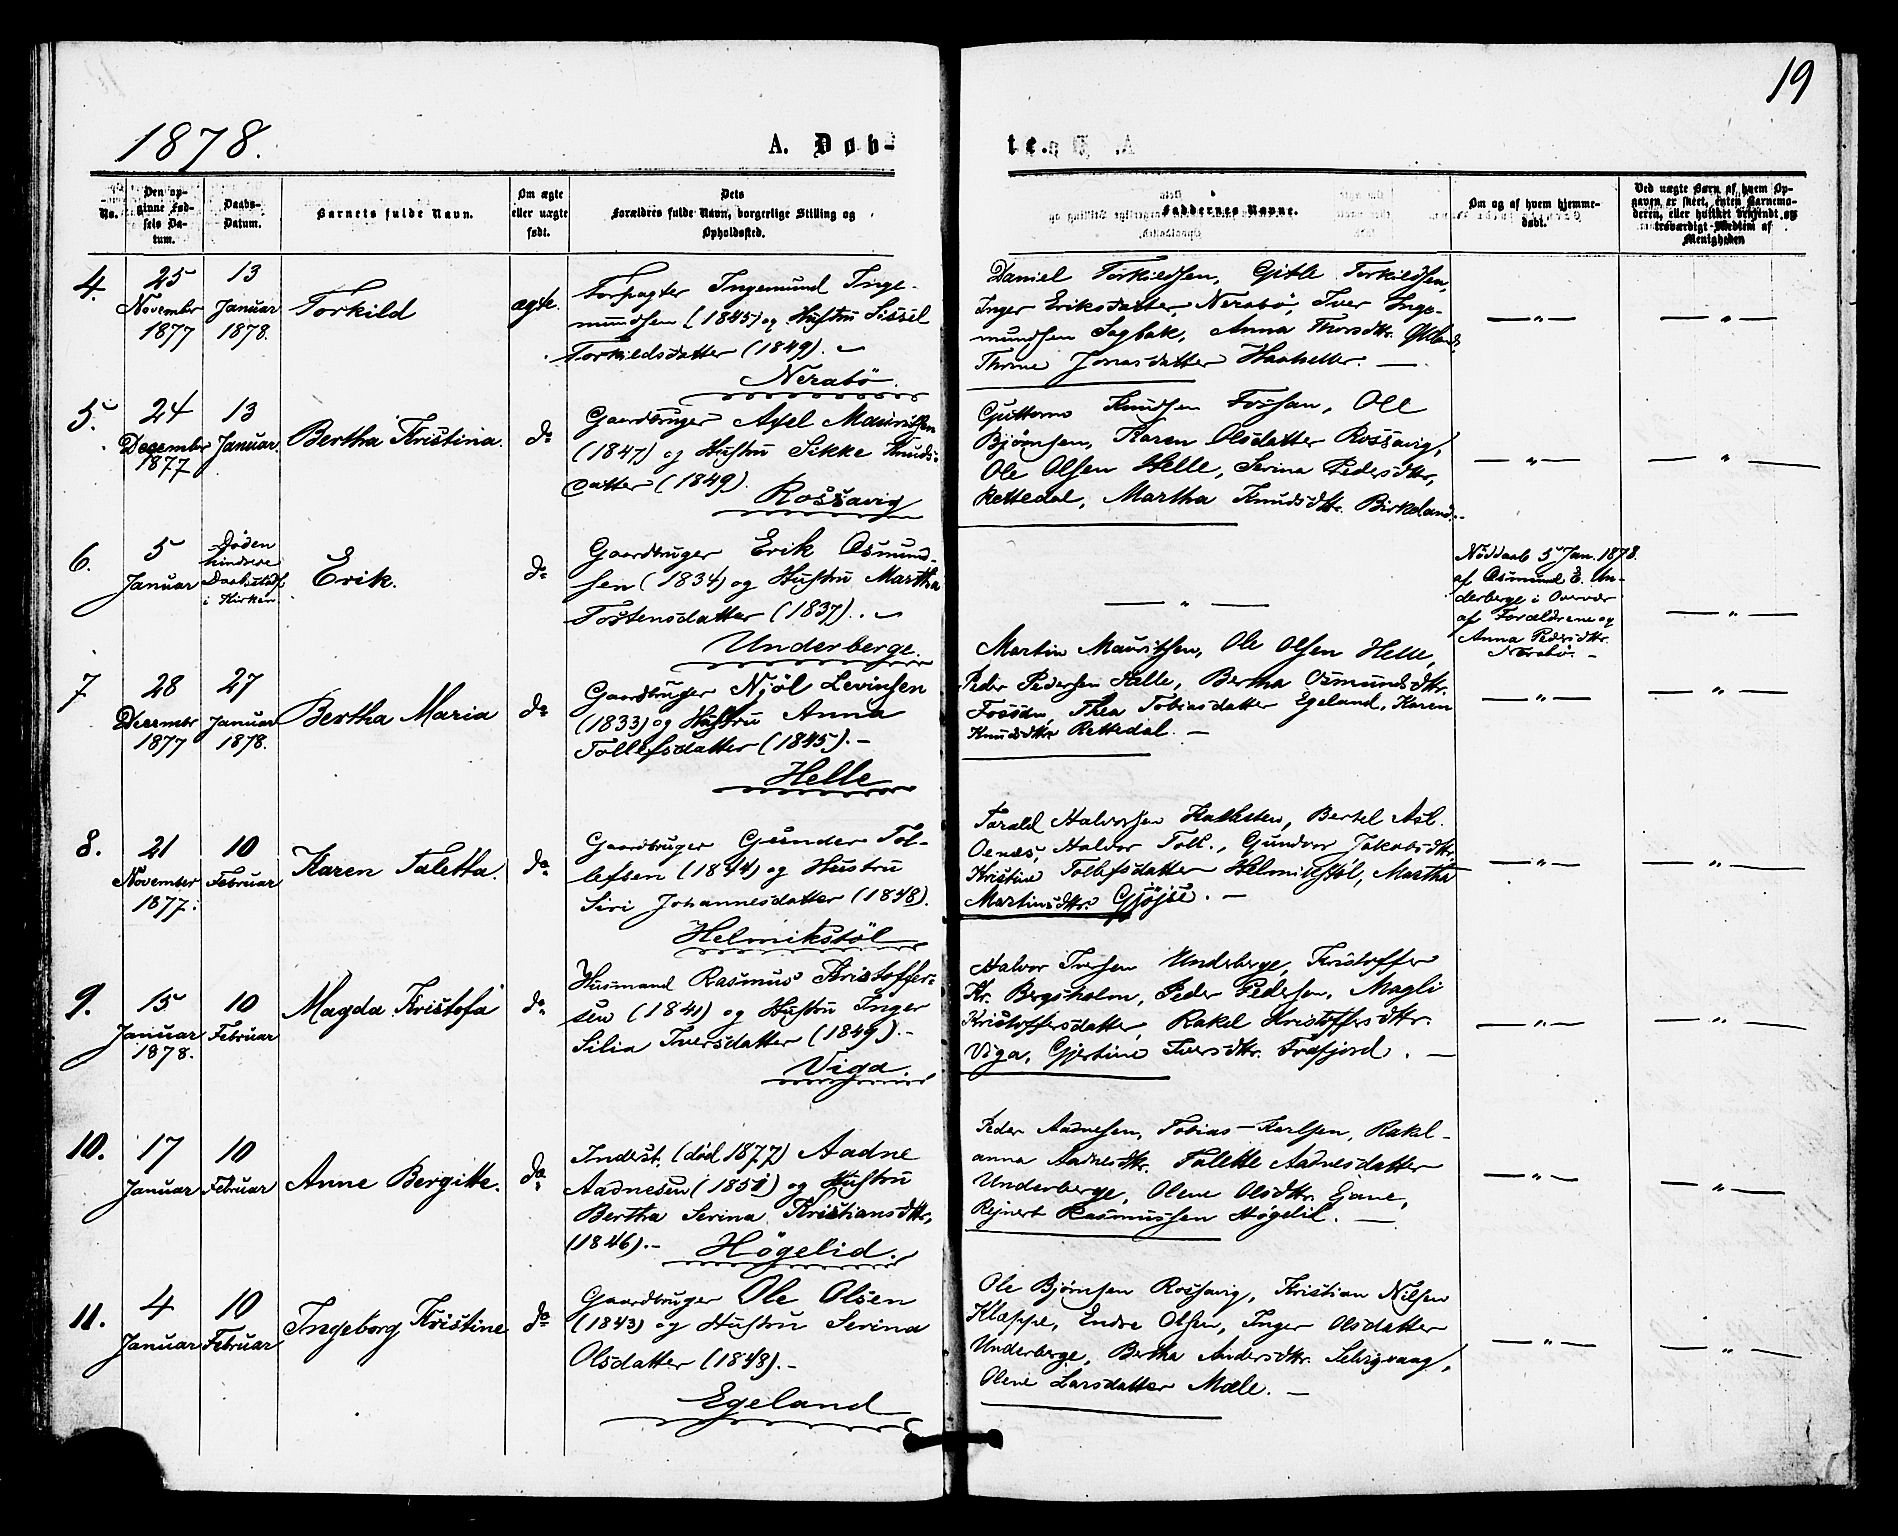 19
1878.
A. Døb-
te.
No.
Den op-
givne Fød-
sels Da-
tum.
Daabs-
Datum.
Barnets fulde Navn.
Om ægte
eller uægte
født.
Dets
Forældres fulde Navn, borgerlige Stilling og
Opholdssted.
Faddernes Navne.
Om og af hvem hjemme-
døbt.
Ved uægte Børn af hvem Op-
gaven er skeet, enten Barnemo-
deren, eller hvilket bekjendt og
troværdigt Medlem af
Menigheden
4.
25
November
1877
13
Januar
1878.
Torkild
ægte.
Forpagter Ingemund Inge-
mundsen (1845) og Hustru Sissel
Torkildsdatter (1849).
Nerabö.
Daniel Torkildsen, Gitle Torkildsen,
Inger Eriksdatter, Nerabö, Iver Inge-
mundsen Sagbak, Anna Thorsdtr.
Thrine Jonasdatter
— " —
— " —
5.
24
December
1877
13
Januar.
Bertha Kristina.
do
Gaardbruger Axel Mauritsen
(1847) og Hustru Sikke Knuds-
datter (1849).
Rossavig
Guttorm Knudsen Fossan, Ole
Bjørnsen, Karen Olsdatter Rossavig,
Ole Olsen Helle, Serina Pedersdtr,
Rettedal, Martha Knudsdtr. Birkeland.
— " —
— " —
6.
5
Januar
Døden
hindrede
Daabstadf.
i Kirken
Erik.
do
Gaardbruger Erik Osmund-
sen (1834) og Hustru Martha
Tostensdatter (1837).
Underberge.
— " —
Nöddaab 5 Jan. 1878.
af Osmund E. Un-
derberge i Overvær
af Forældrene og
Anna Pedersdtr.
Nerabö. -
— " —
7
28
December
1877
27
Januar
1878.
Bertha Maria
do
Gaardbruger Njöl Levinsen
(1833) og Hustru Anna
Tollefsdatter (1845). -
Helle
Martin Mauritsen, Ole Olsen Helle,
Peder Pedersen Helle, Bertha Osmundsdtr.
Fossan, Thea Tobiasdatter Egeland, Karen
Knudsdtr Rettedal. —
— " —
— " —
8.
21
November
1877.
10
Februar
Karen Taletta.
do
Gaardbruger Gunder Tol-
lefsen (1844) og Hustru
Siri Johannesdatter (1848).
Helmikstöl
Torald Halvorsen Bertel Asl.
Oenes, Haldor Toll., Gundvor Jakobsdtr,
Kristine Tollefsdatter Helmikstöl, Martha
Martinsdtr. —
— " —
— " —
9.
15
Januar
1878.
10
Februar
Magda Kristofa
do
Husmand Rasmus Kristoffer-
sen (1841) og Hustru Inger
Silia Iversdatter (1849). -
Viga.
Halvor Iversen Underberge, Kristoffer
Kr. Bergsholm, Peder Pedersen, Magli
Kristoffersdatter, Rakel Kristoffersdtr.
Viga, Gjertine Iversdtr. Frafjord. —
— " —
— " —
10.
17
Januar
10
Februar
Anne Bergitte.
do
Inderst. (död 1877) Aadne
Aadnesen (1851) og Hustru
Bertha Serina Kristiansdtr,
(1846). -
Högelid.
Peder Aadnesen, Tobias Karlsen, Rakel-
anna Aadnesdtr. Talette Aadnesdatter
Underberge, Olene Olsdtr. Ejane,
Rejnert Rasmussen Högelid. —
— " —
— " —
11.
4
Januar
10
Februar
Ingeborg Kristine
do
Gaardbruger Ole Olsen
(1843) og Hustru Serina
Olsdatter (1848). -
Egeland
Ole Bjørnsen Rossavig, Kristian Nilsen
Klæppe, Endre Olsen, Inger Olsdatter
Underberge, Bertha Andersdtr. Selvigvaag,
Olene Larsdatter Mæle. —
— " —
— " —